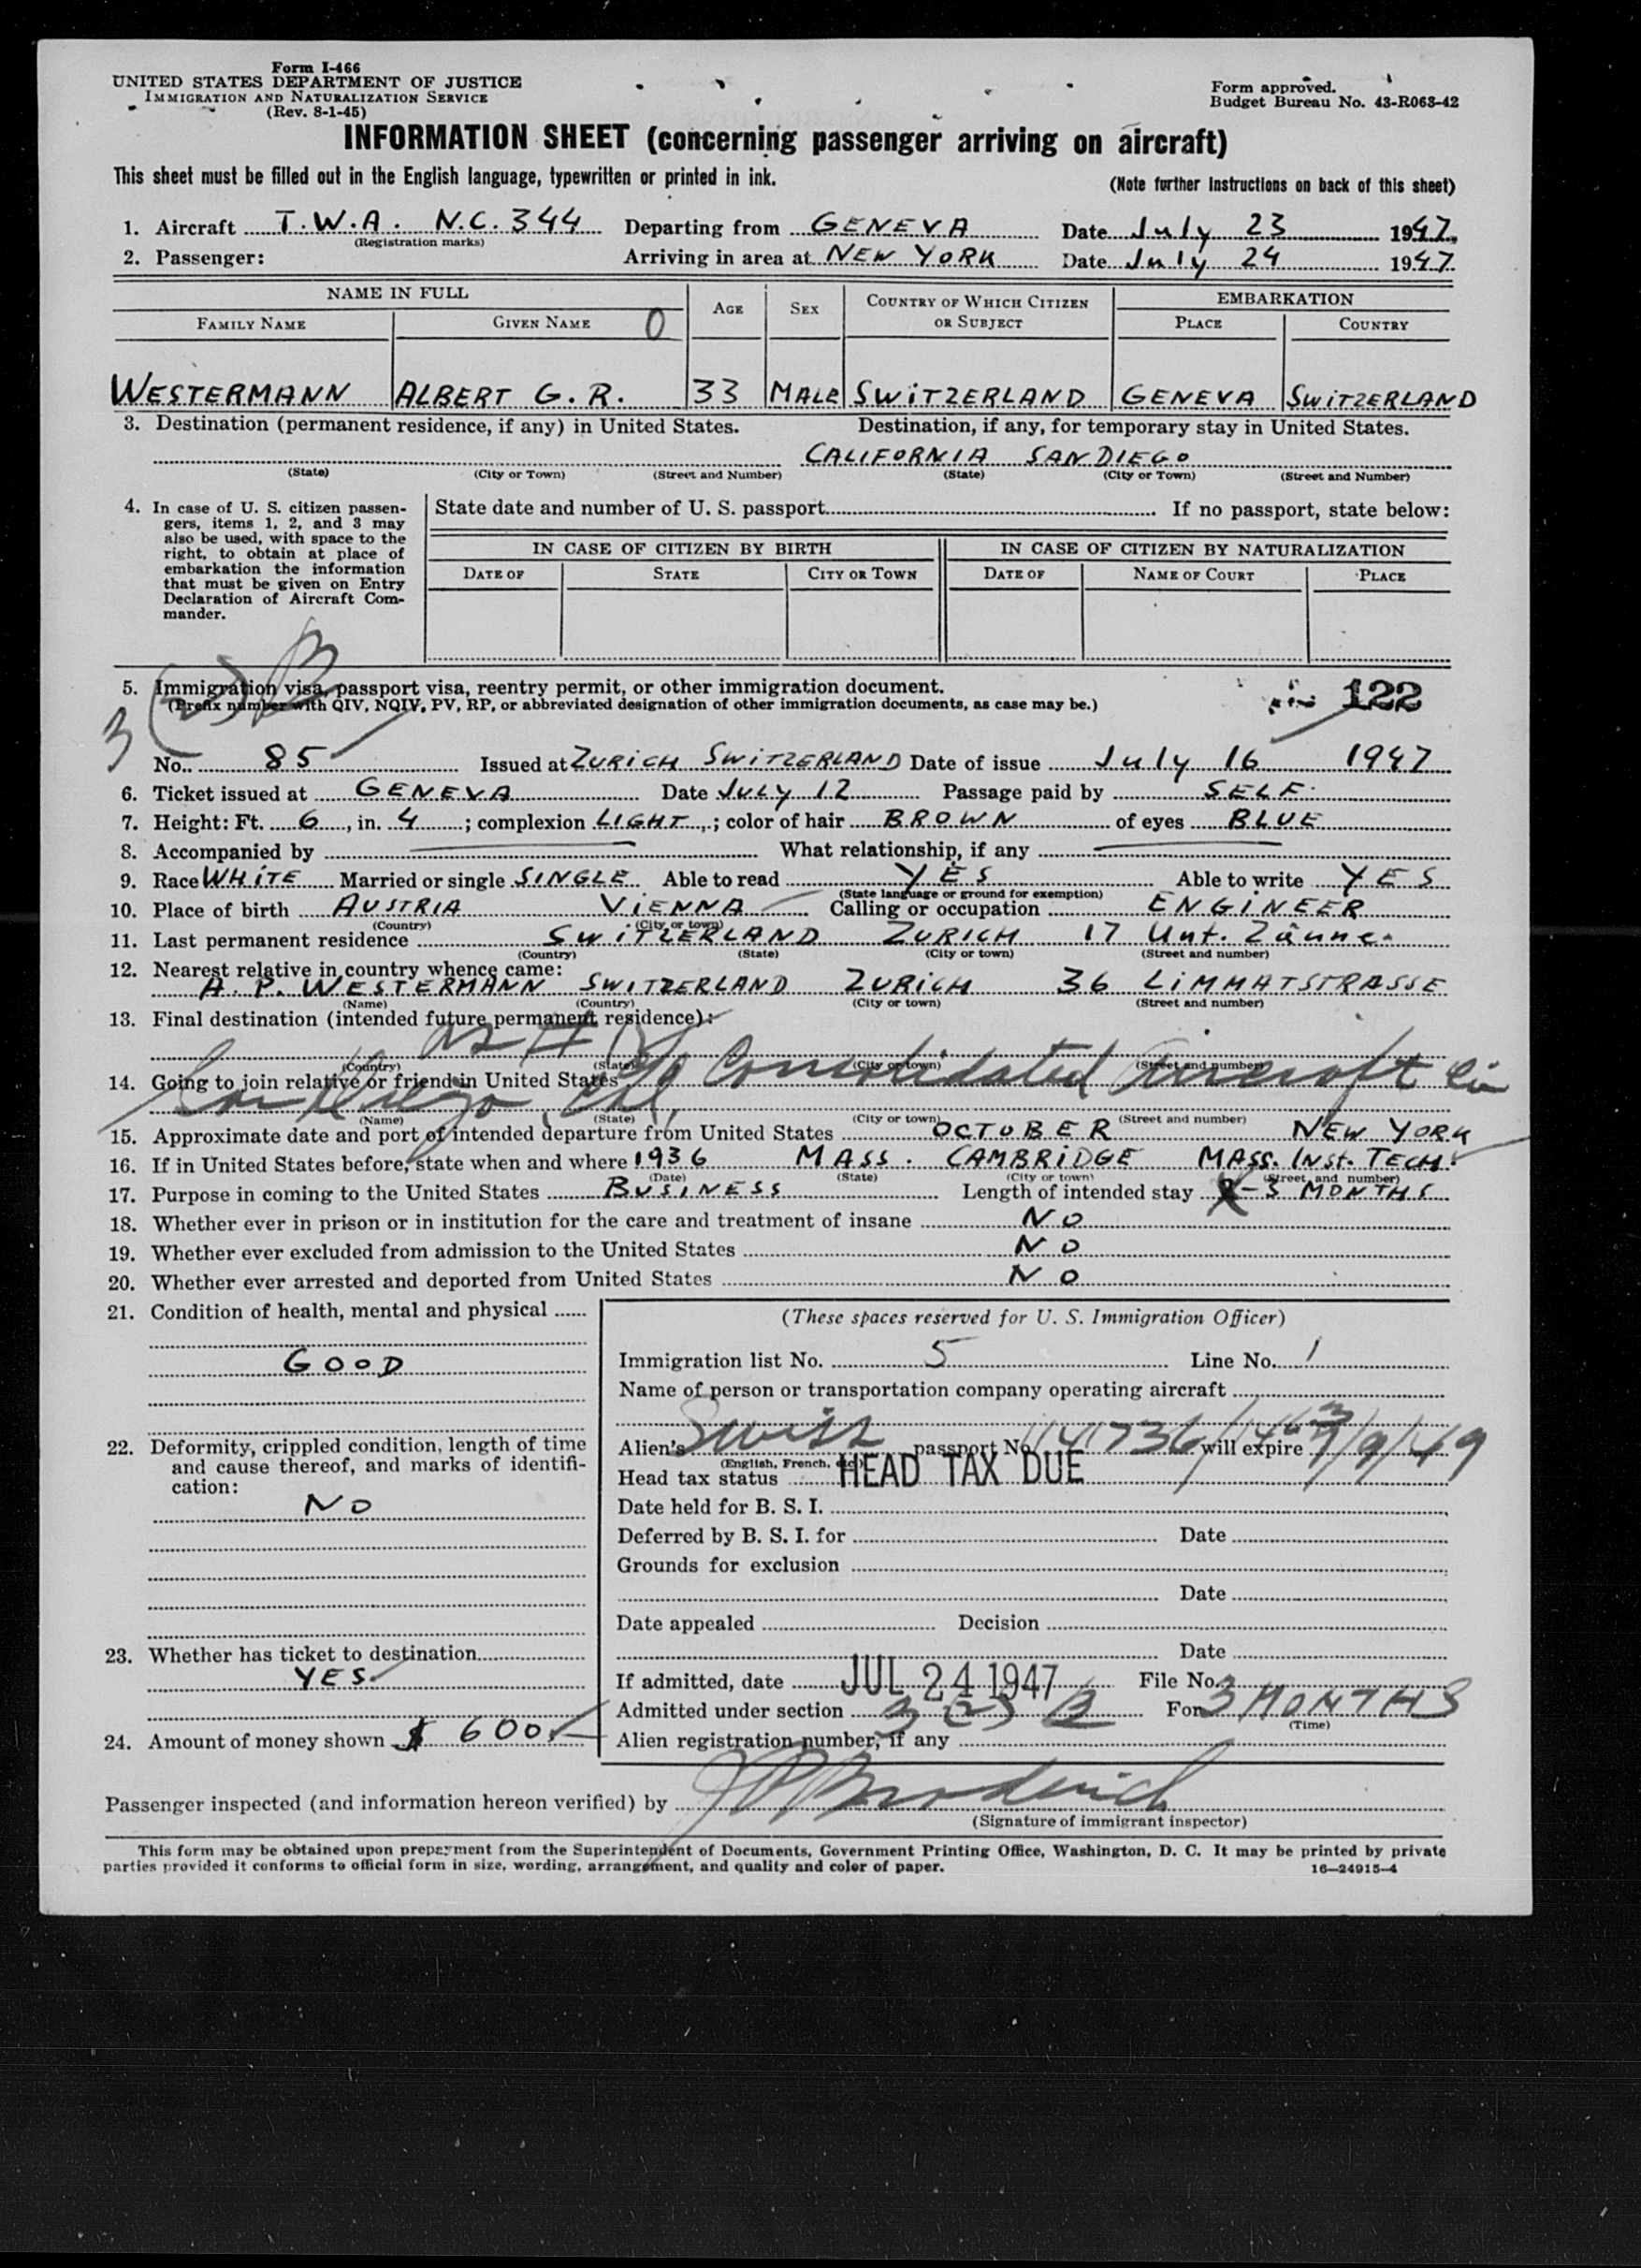 Form I-466
UNITED STATES DEPARTMENT OF JUSTICE
IMMIGRATION AND NATURALIZATION SERVICE
(Rev. 8-1-45)
Form approved.
Budget Bureau No. 43-R063-42
INFORMATION SHEET (concerning passenger arriving on aircraft)
This sheet must be filled out in the English language, typewritten or printed in ink.
(Note further instructions on back of this sheet)
1. Aircraft T.W.A. N.C. 344 Departing from GENEVA Date July 23 1947
(Registration marks)
2. Passenger: Arriving in area at NEW YORK Date July 24 1947
NAME IN FULL AGE SEX COUNTRY OF WHICH CITIZEN OR SUBJECT EMBARKATION
FAMILY NAME GIVEN NAME 0 PLACE COUNTRY
WESTERMANN ALBERT G. R. 33 MALE SWITZERLAND GENEVA SWITZERLAND
3. Destination (permanent residence, if any) in United States. Destination, if any, for temporary stay in United States.
CALIFORNIA SAN DIEGO
(State) (City or Town) (Street and Number) (State) (City or Town) (Street and Number)
4. In case of U. S. citizen passen-
gers, items 1, 2, and 3 may
also be used, with space to the
right, to obtain at place of
embarkation the information
that must be given on Entry
Declaration of Aircraft Com-
mander.
State date and number of U. S. passport If no passport, state below:
IN CASE OF CITIZEN BY BIRTH IN CASE OF CITIZEN BY NATURALIZATION
DATE OF STATE CITY OR TOWN DATE OF NAME OF COURT PLACE
3(2)B
5. Immigration visa, passport visa, reentry permit, or other immigration document.
(Prefix number with QIV, NQIV, PV, RP, or abbreviated designation of other immigration documents, as case may be.)
122
No. 85 Issued at ZURICH SWITZERLAND Date of issue July 16 1947
6. Ticket issued at GENEVA Date JULY 12 Passage paid by SELF
7. Height: Ft. 6, in. 4; complexion LIGHT; color of hair BROWN of eyes BLUE
8. Accompanied by What relationship, if any
9. Race WHITE Married or single SINGLE Able to read YES Able to write YES
(State language or ground for exemption)
10. Place of birth AUSTRIA VIENNA Calling or occupation ENGINEER
(Country) (City or town)
11. Last permanent residence SWITZERLAND ZURICH 17 Unt. Zäune
(Country) (State) (City or town) (Street and number)
12. Nearest relative in country whence came:
A. P. WESTERMANN SWITZERLAND ZURICH 36 LIMMATSTRASSE
(Name) (Country) (City or town) (Street and number)
13. Final destination (intended future permanent residence):
(Country) (State) (City or town) (Street and number)
14. Going to join relative or friend in United States c/o Consolidated Aircraft
San Diego, Cal,
(Name) (State) (City or town) (Street and number)
15. Approximate date and port of intended departure from United States OCTOBER NEW YORK
16. If in United States before, state when and where 1936 MASS. CAMBRIDGE MASS. INST. TECH.
(Date) (State) (City or town) (Street and number)
17. Purpose in coming to the United States BUSINESS Length of intended stay 3 MONTHS
18. Whether ever in prison or in institution for the care and treatment of insane NO
19. Whether ever excluded from admission to the United States NO
20. Whether ever arrested and deported from United States NO
21. Condition of health, mental and physical
GOOD
22. Deformity, crippled condition, length of time
and cause thereof, and marks of identifi-
cation:
NO
23. Whether has ticket to destination
YES
24. Amount of money shown $ 600
(These spaces reserved for U. S. Immigration Officer)
Immigration list No. 5 Line No. 1
Name of person or transportation company operating aircraft
Alien's Swiss passport No. will expire 9/49
(English, French, etc.)
Head tax status HEAD TAX DUE
Date held for B. S. I.
Deferred by B. S. I. for Date
Grounds for exclusion
Date
Date appealed Decision
Date
If admitted, date JUL 24 1947 File No.
Admitted under section 3 (2) B For 3 MONTHS
(Time)
Alien registration number, if any
Passenger inspected (and information hereon verified) by
(Signature of immigrant inspector)
This form may be obtained upon prepayment from the Superintendent of Documents, Government Printing Office, Washington, D. C. It may be printed by private
parties provided it conforms to official form in size, wording, arrangement, and quality and color of paper.
16—24915-4